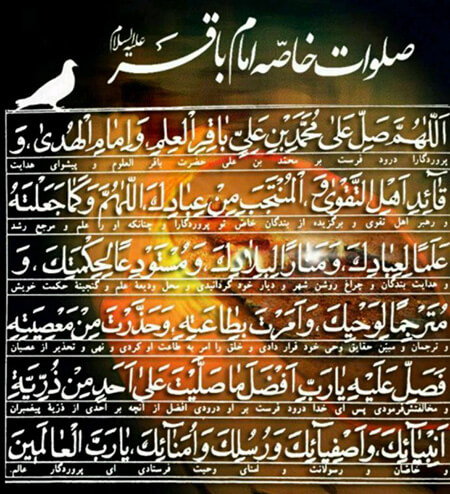 صلوات خاصه امام باقر علیه السلام
اَللّهُمَّ صَلِّ عَلى مُحَمَّدِ بْنِ عَلِيٍّ باقِرِ الْعِلْمِ، وَ اِمامِ الْهُدى، وَ
پروردگارا درود فرست بر محمد بن علی حضرت باقر العلوم و پیشوای هدایت
قآئِدِ اَهْلِ التَّقْوى، وَ الْمُنْتَجَبِ مِنْ عِبادِكَ، اَللّهُمَّ وَ كَما جَعَلْتَهُ
و رهبر اهل تقوی و برگزیده از بندگان خاص تو پروردگارا و چنانکه او را علم و مرجع رشد
عَلَمًا لِعِبادِكَ، وَ مَنارًا لِبِلادِكَ، وَ مُسْتَوْدَعًا لِحِكْمَتِكَ، وَ
و هدایت بندگان و چراغ روشن شهر و دیار خود گردانیدی و محل ودیعهٔ علم و گنجینهٔ حکمت خویش
مُتَرْجِمًا لِوَحْيِكَ، وَ اَمَرْتَ بِطاعَتِهِ، وَ حَذَّرْتَ مِنْ مَعْصِيَتِهِ
و ترجمان و مبیّن حقایق وحی خود قرار دادی و خلق را امر به طاعت او کردی و نهی و تحذیر از عصیان
فَصَلِّ عَلَيْهِ يا رَبِّ اَفْضَلَ ما صَلَّيْتَ عَلى اَحَدٍ مِنْ ذُرِّيَّةِ
و مخالفتش فرمودی پس ای خدا درود فرست بر او درودی افضل از آنچه بر احدی از ذریهٔ پیغمبران
اَنْبِيآئِكَ، وَ اَصْفِيآئِكَ، وَ رُسُلِكَ، وَ اُمَنآئِكَ، يا رَبَّ الْعالَمينَ
و خاصان و رسولانت و امنای وحیت فرستادی ای پروردگار عالم.